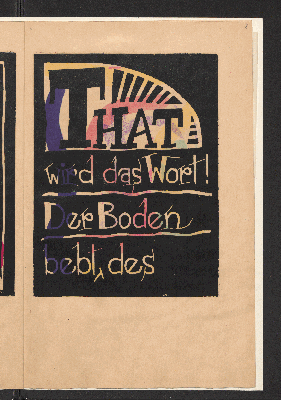 THAT
wird das Wort!
Der Boden
bebt, des